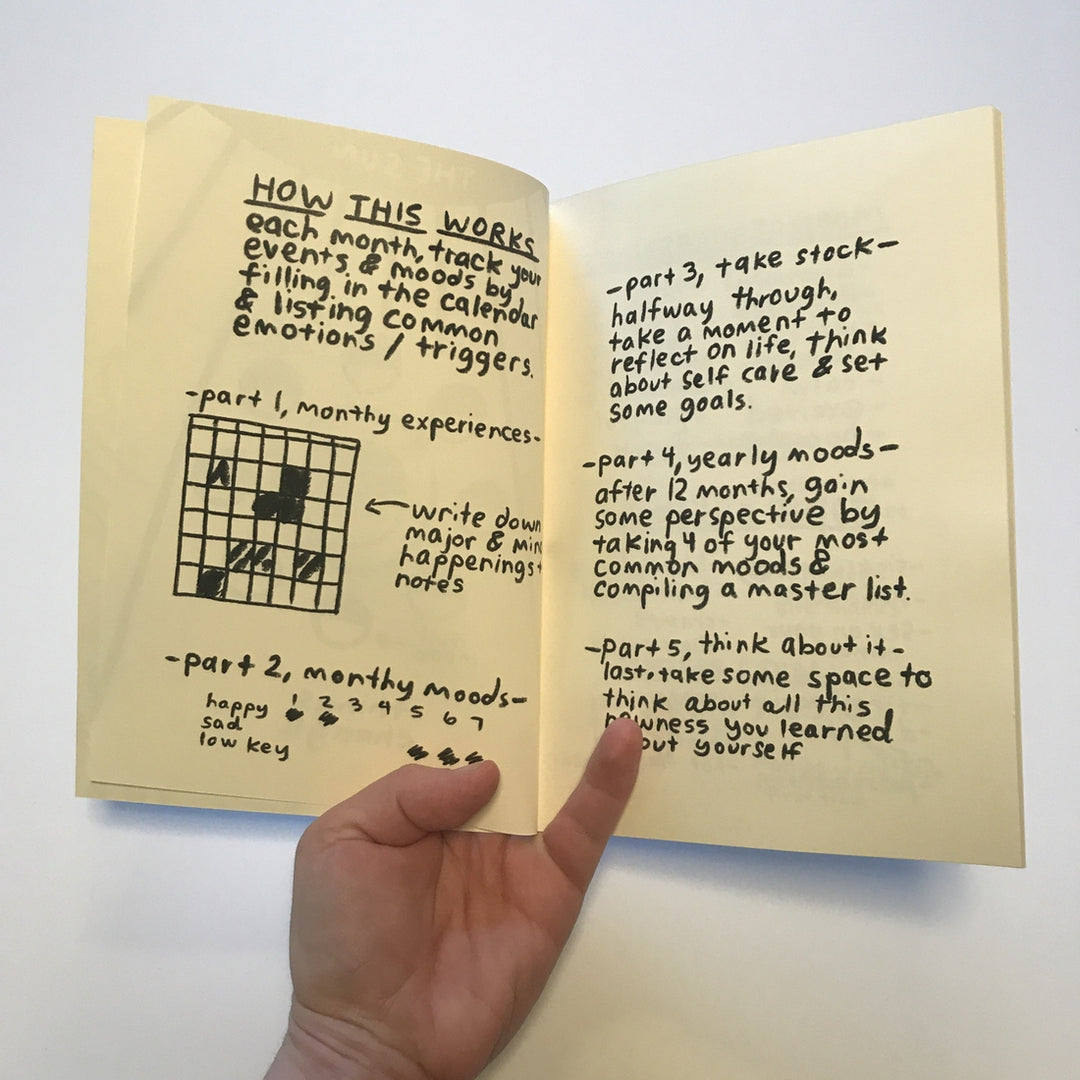 HOW THIS WORKS
each month, track your
events & moods by
filling in the calendar
& listing common
emotions / triggers.
-part 1, monthy experiences-
write down
major & min
happenings +
notes
-part 2, monthy moods-
happy 1 2 3 4 5 6 7
sad
low key
-part 3, take stock-
halfway through,
take a moment to
reflect on life, think
about self care & set
some goals.
-part 4, yearly moods-
after 12 months, gain
some perspective by
taking 4 of your most
common moods &
compiling a master list.
-part 5, think about it-
last, take some space to
think about all this
newness you learned
out yourself